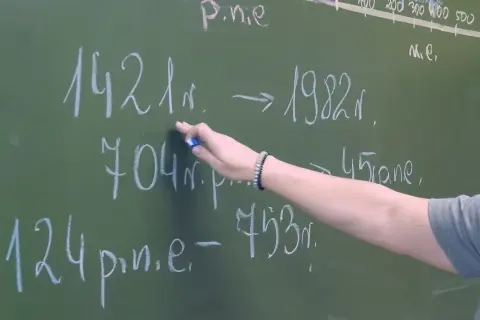 p.n.e
100 200 300 400 500
n.e.
1421 r. → 1982 r.
704 r. p. → 45 p.n.e.
124 p.n.e. – 753 r.